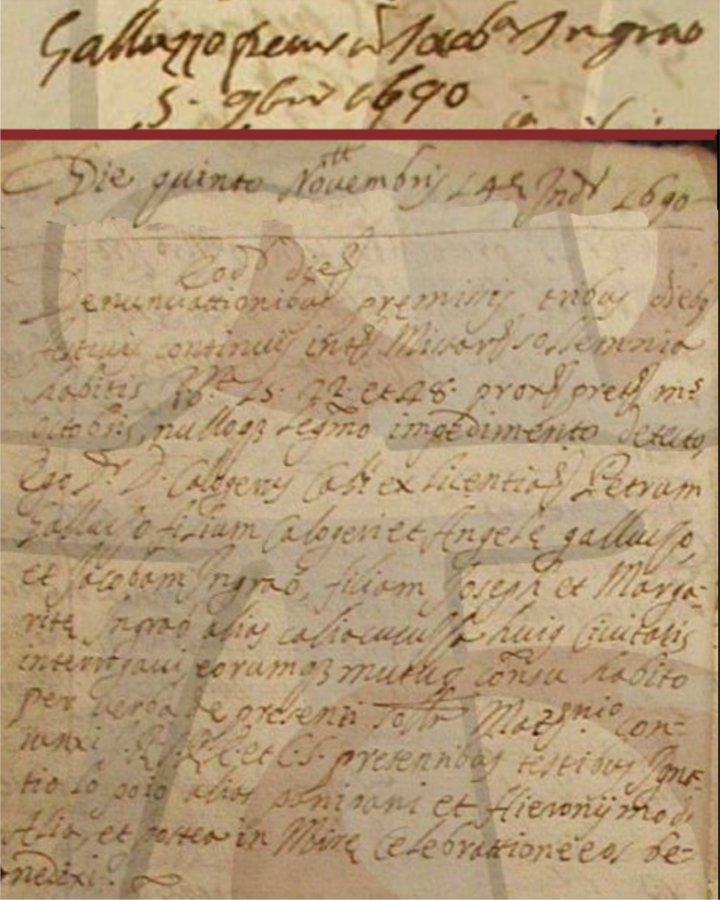 Galluzzo petrus cū Jacoba Ingrao
5. 9bris 1690
Die quinto Novembris 14e Ind: 1690
Eod. die
Denunciationibus premissis tribus diebus
festivis continuis inter Missar. sollemnia
habitis 15. 22. et 28. prox. pret. m.s
octobris, nulloq3 legmo impedimento detecto
Ego D. D. Calogerus ex licentia Petrum
Gallusso filium Calogeri et Angele gallusso,
et Jacobam Ingrao, filiam Joseph et Marga-
rite Ingrao alias huius Civitatis
interrogavi eorumq3 mutuo cōnsu habito
per verba de presenti Matrimonio con-
iunxi et C.S. presentibus testibus Igna-
tio lo alias et Hieronymo di
Alia, et postea in Misse Celebratione eos be-
nedixi.